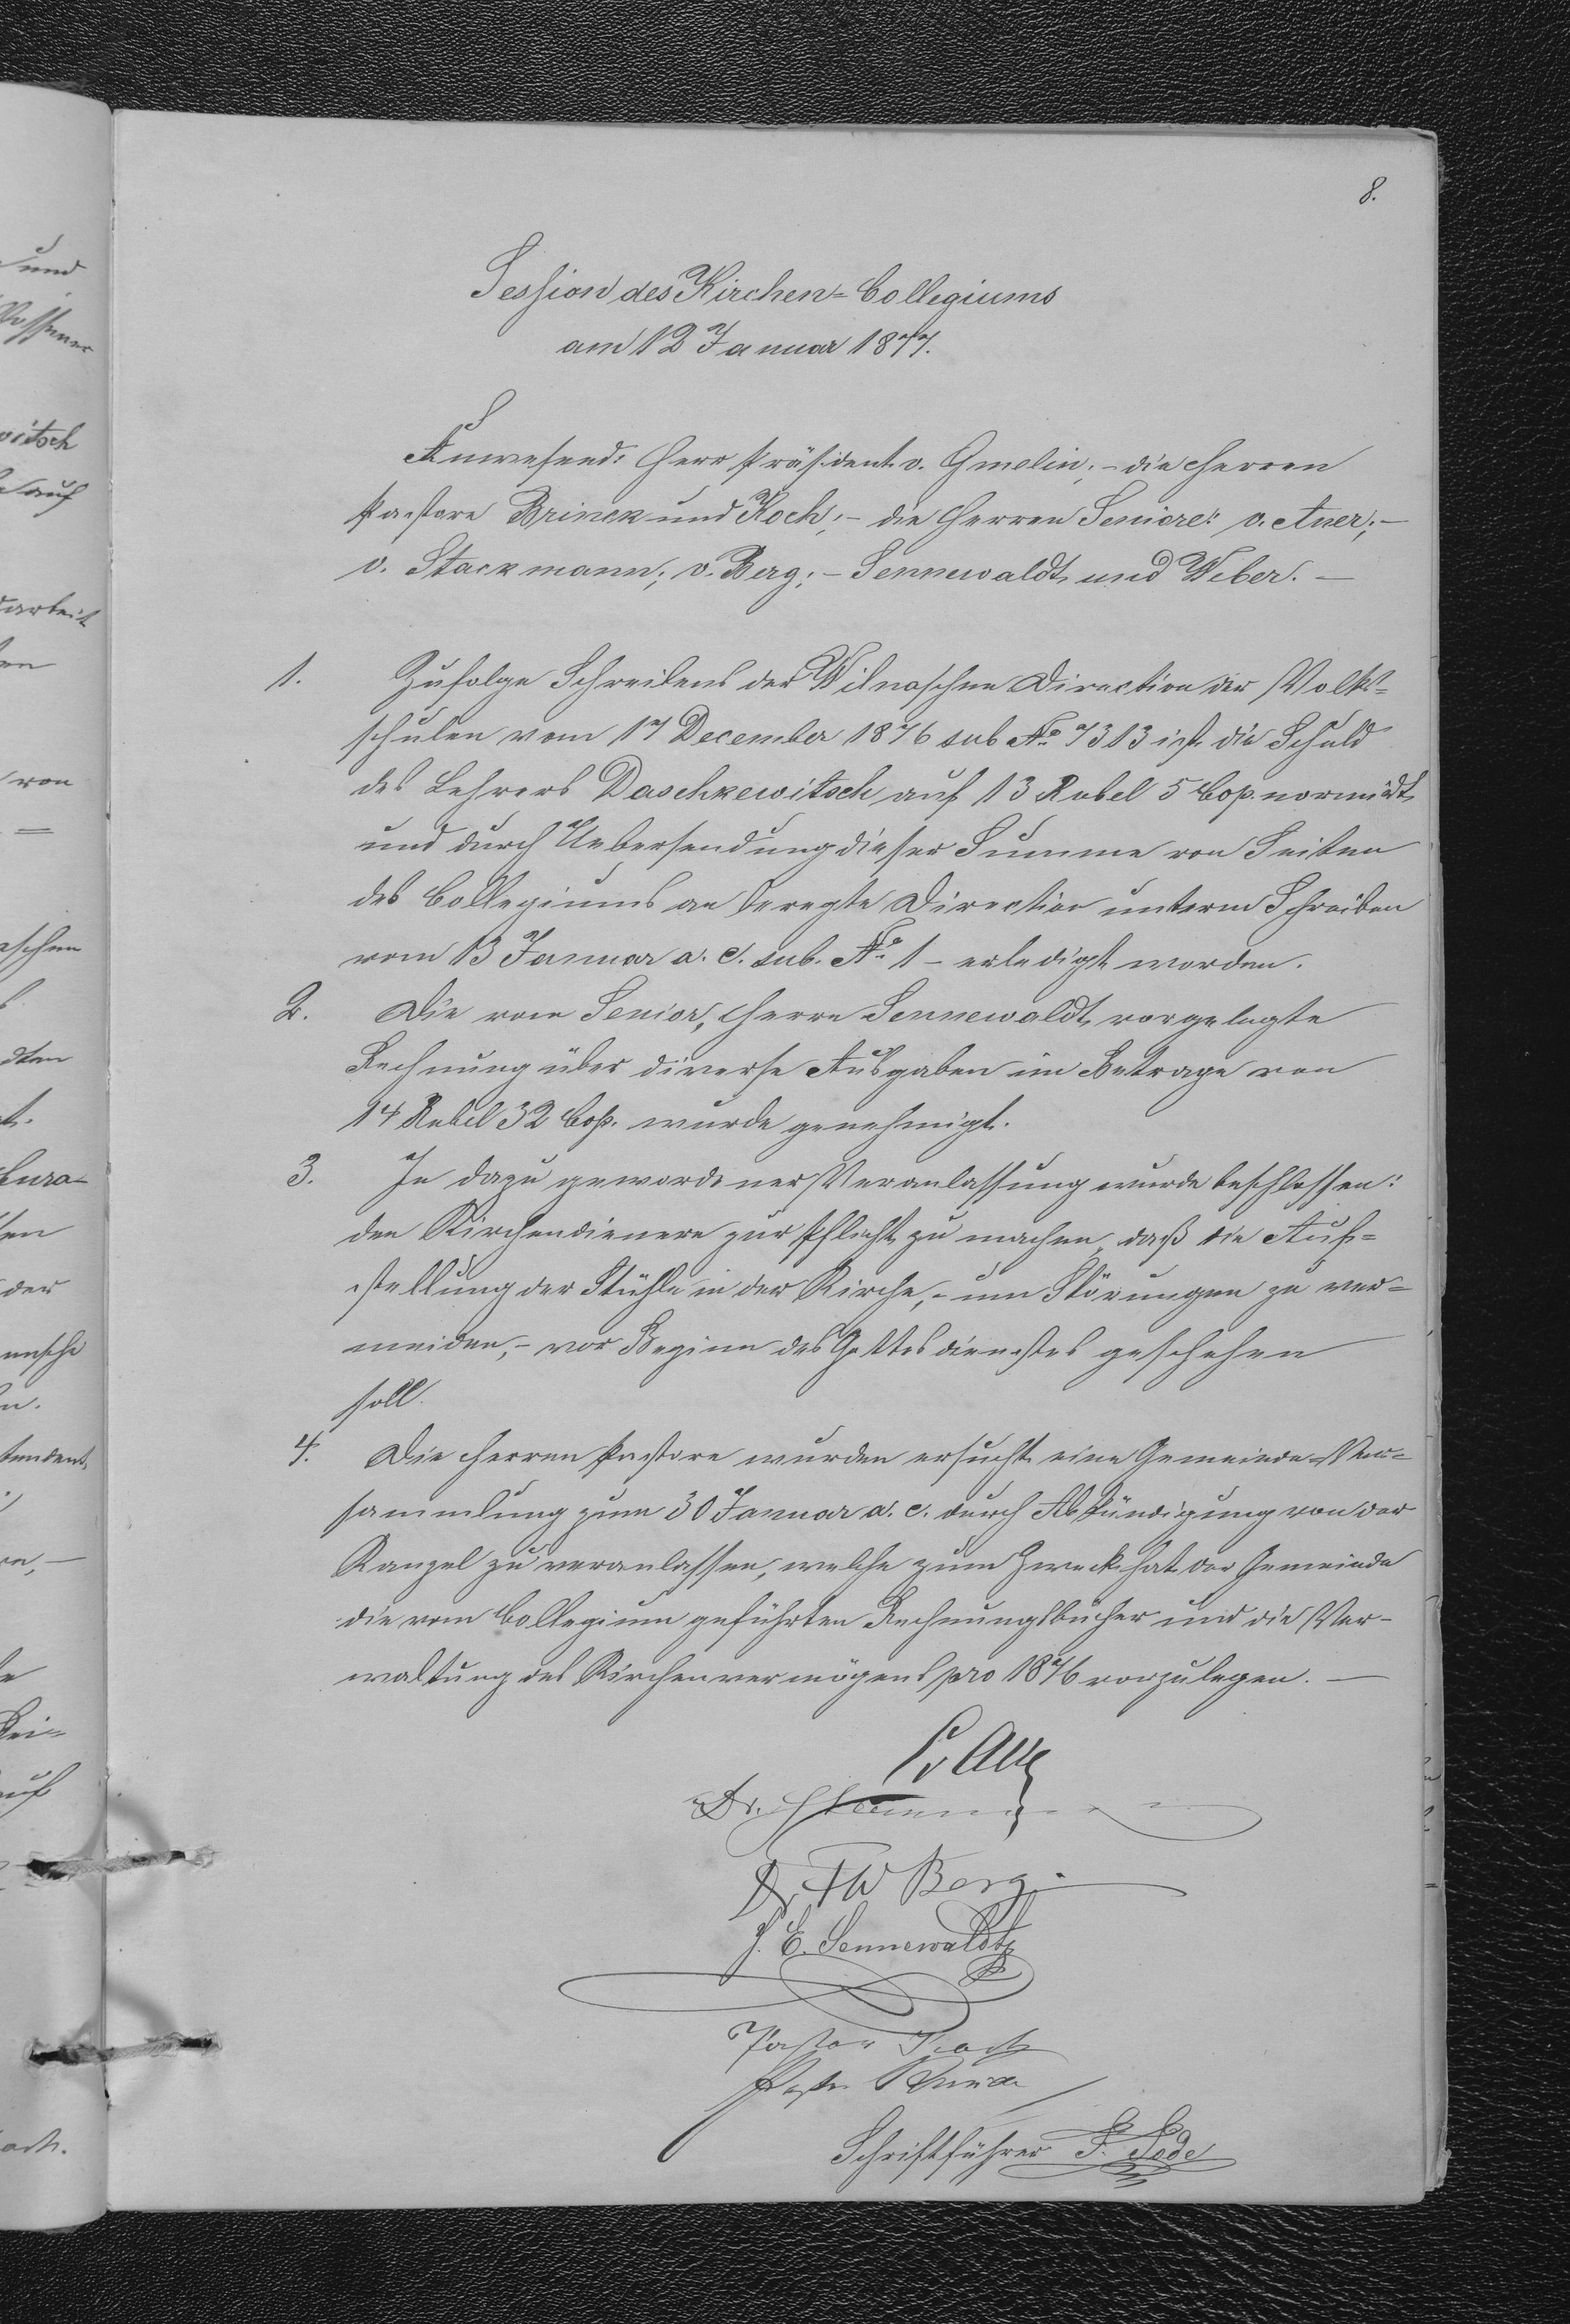 8.
Session des Kirchen-Collegiums
am 12 Januar 1877.
Anwesend: Herr Präsident v. Gmelin; – die Herren
Pastore Brinck und Koch; – die Herren Seniore: v. Auer; –
v. Stackmann; v. Berg; – Sennewaldt und Weber. –
1. Zufolge Schreibens der Wilnaschen Direction der Volks-
schulen vom 17 December 1876 sub No 7313 ist die Schuld
des Lehrers Daschkewitsch auf 13 Rubel 5 Cop. normirt
und durch Uebersendung dieser Summe von Seiten
des Collegiums an beregte Direction unterm Schreiben
vom 13 Januar a. c. sub. No 1 – erledigt worden.
2. Die vom Senior, Herrn Sennewaldt vorgelegte
Rechnung über diverse Ausgaben im Betrage von
14 Rubel 32 Cop. wurde genehmigt.
3. In dazu gewordener Veranlassung wurde beschlossen:
den Kirchendienern zur Pflicht zu machen, daß die Auf-
stellung der Stühle in der Kirche, – um Störungen zu ver-
meiden, – vor Beginn des Gottesdienstes geschehen
soll.
4. Die Herren Pastore wurden ersucht eine Gemeinde-Ver-
sammlung zum 30 Januar a. c. durch Abkündigung von der
Kanzel zu veranlassen, welche zum Zweck hat der Gemeinde
die vom Collegium geführten Rechnungsbücher und die Ver-
waltung des Kirchenvermögens pro 1876 vorzulegen. –
v Auer
Dr.
Dr. FW Berg
J. E. Sennewaldt
Pastor Koch
Pastor Brinck
Schriftführer F. Tode
und
witsch
auf
arbeit
von
Cura-
der
auf